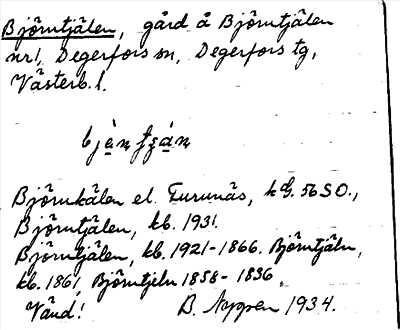 Björntjälen, gård å Björntjälen
nr 1, Degerfors sn, Degerfors tg,
Västerb. l.
bjè̱n
Björnkälen el. Furunäs, k G. 56 SO.,
Björntjälen, kb. 1931.
Björntjälen, kb. 1921-1866. Björntjäln,
kb. 1861, Björntjeln 1858-1836.
Vänd! B. 1934.